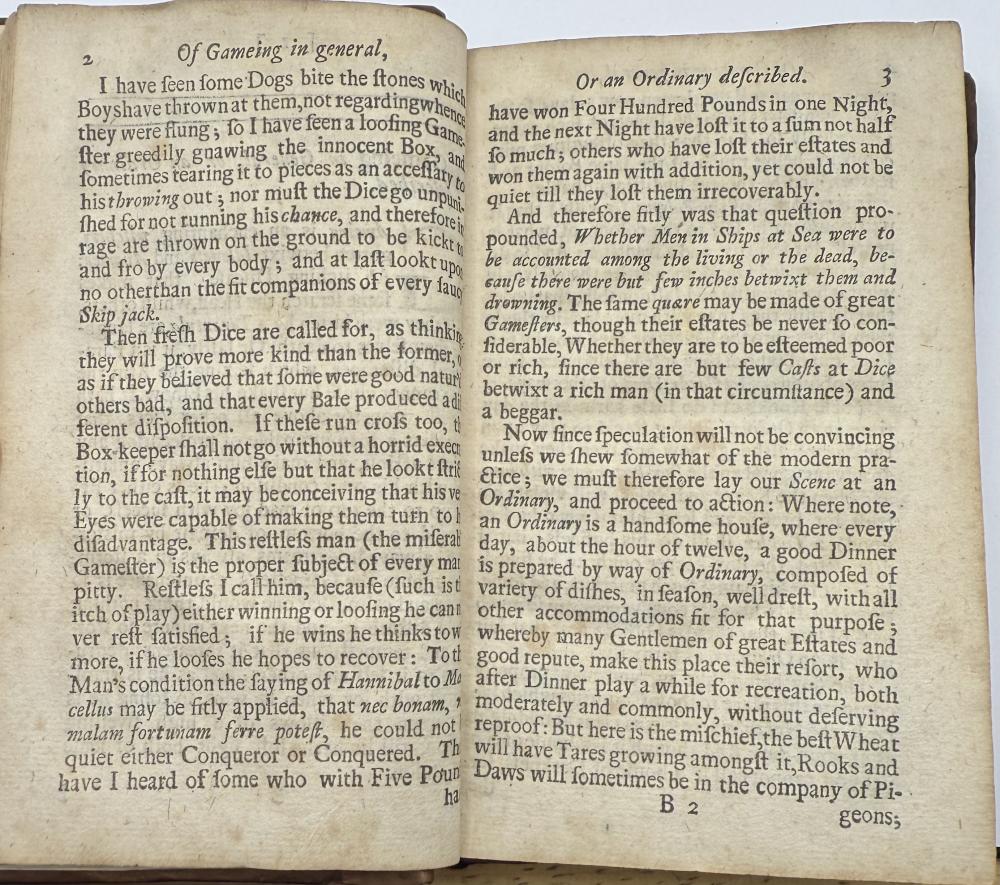 2 Of Gameing in general,
I have ſeen ſome Dogs bite the ſtones which
Boys have thrown at them, not regarding whence
they were flung; ſo I have ſeen a looſing Game-
ſter greedily gnawing the innocent Box, and
ſometimes tearing it to pieces as an acceſſary to
his throwing out; nor muſt the Dice go unpuni-
ſhed for not running his chance, and therefore in
rage are thrown on the ground to be kickt to
and fro by every body; and at laſt lookt upon
no other than the fit companions of every ſauc
Skip jack.
Then freſh Dice are called for, as thinking
they will prove more kind than the former, o
as if they believed that ſome were good natur'
others bad, and that every Bale produced a di
ferent diſpoſition. If theſe run croſs too, t
Box-keeper ſhall not go without a horrid execr
tion, if for nothing elſe but that he lookt ſtri
ly to the caſt, it may be conceiving that his ve
Eyes were capable of making them turn to h
diſadvantage. This reſtleſs man (the miſerab
Gameſter) is the proper ſubject of every man
pitty. Reſtleſs I call him, becauſe (ſuch is t
itch of play) either winning or looſing he can n
ver reſt ſatisfied; if he wins he thinks to w
more, if he looſes he hopes to recover: To th
Man's condition the ſaying of Hannibal to Ma
cellus may be fitly applied, that nec bonam,
malam fortunam ferre poteſt, he could not
quiet either Conqueror or Conquered. Th
have I heard of ſome who with Five Poun
ha
Or an Ordinary deſcribed. 3
have won Four Hundred Pounds in one Night,
and the next Night have loſt it to a ſum not half
ſo much; others who have loſt their eſtates and
won them again with addition, yet could not be
quiet till they loſt them irrecoverably.
And therefore fitly was that queſtion pro-
pounded, Whether Men in Ships at Sea were to
be accounted among the living or the dead, be-
cauſe there were but few inches betwixt them and
drowning. The ſame quære may be made of great
Gameſters, though their eſtates be never ſo con-
ſiderable, Whether they are to be eſteemed poor
or rich, ſince there are but few Caſts at Dice
betwixt a rich man (in that circumſtance) and
a beggar.
Now ſince ſpeculation will not be convincing
unleſs we ſhew ſomewhat of the modern pra-
ctice; we muſt therefore lay our Scene at an
Ordinary, and proceed to action: Where note,
an Ordinary is a handſome houſe, where every
day, about the hour of twelve, a good Dinner
is prepared by way of Ordinary, compoſed of
variety of diſhes, in ſeaſon, well dreſt, with all
other accommodations fit for that purpoſe;
whereby many Gentlemen of great Eſtates and
good repute, make this place their reſort, who
after Dinner play a while for recreation, both
moderately and commonly, without deſerving
reproof: But here is the miſchief, the beſt Wheat
will have Tares growing amongſt it, Rooks and
Daws will ſometimes be in the company of Pi-
B 2 geons;